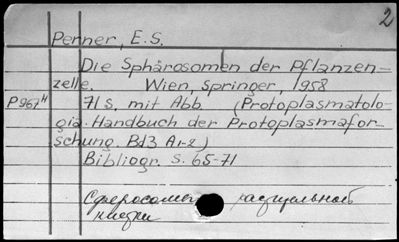 2
Perner, E.S.
Die Sphärosomen der Pflanzen-
zelle. Wien, Springer, 1958
P967H 71 s. mit Abb. (Protoplasmatolo-
gia. Handbuch der Protoplasmafor-
schung. Bd3 A-2)
Bibliogr. s. 65-71
Сферосомы растительной
клетки